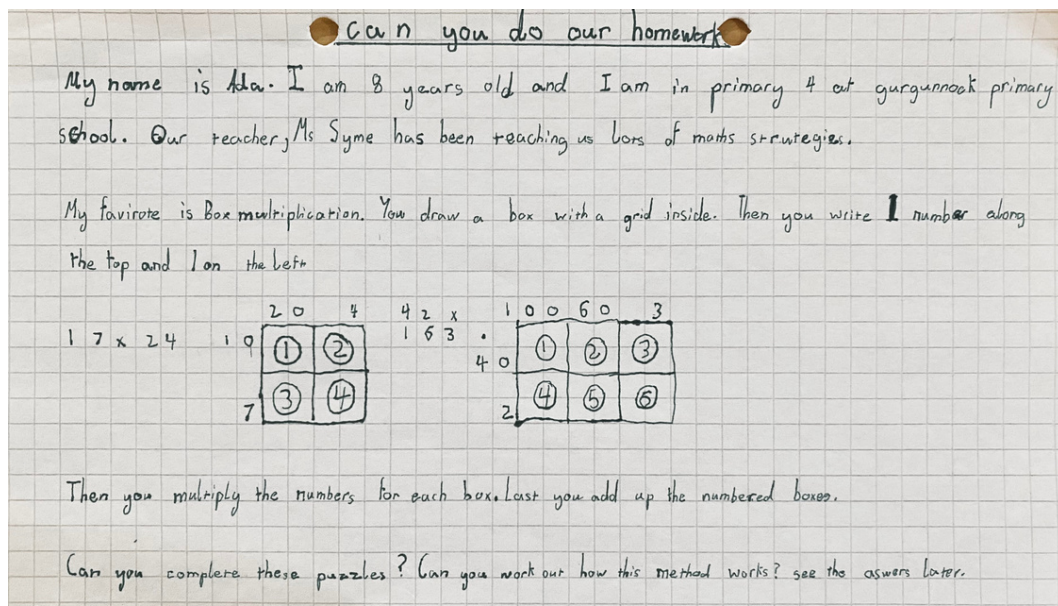 can you do our homework
My name is Ada. I am 8 years old and I am in primary 4 at gurgunnock primary
school. Our teacher, Ms Syme has been teaching us lots of maths strutegies.
My favirote is Box multiplication. You draw a box with a grid inside. Then you write 1 number along
the top and 1 on the left
17 x 24
20 4
10 ① ②
7 ③ ④
42 x
163.
100 60 3
40 ① ② ③
2 ④ ⑤ ⑥
Then you multiply the numbers for each box. Last you add up the numbered boxes.
Can you complete these puzzles? Can you work out how this method works? see the aswers later.